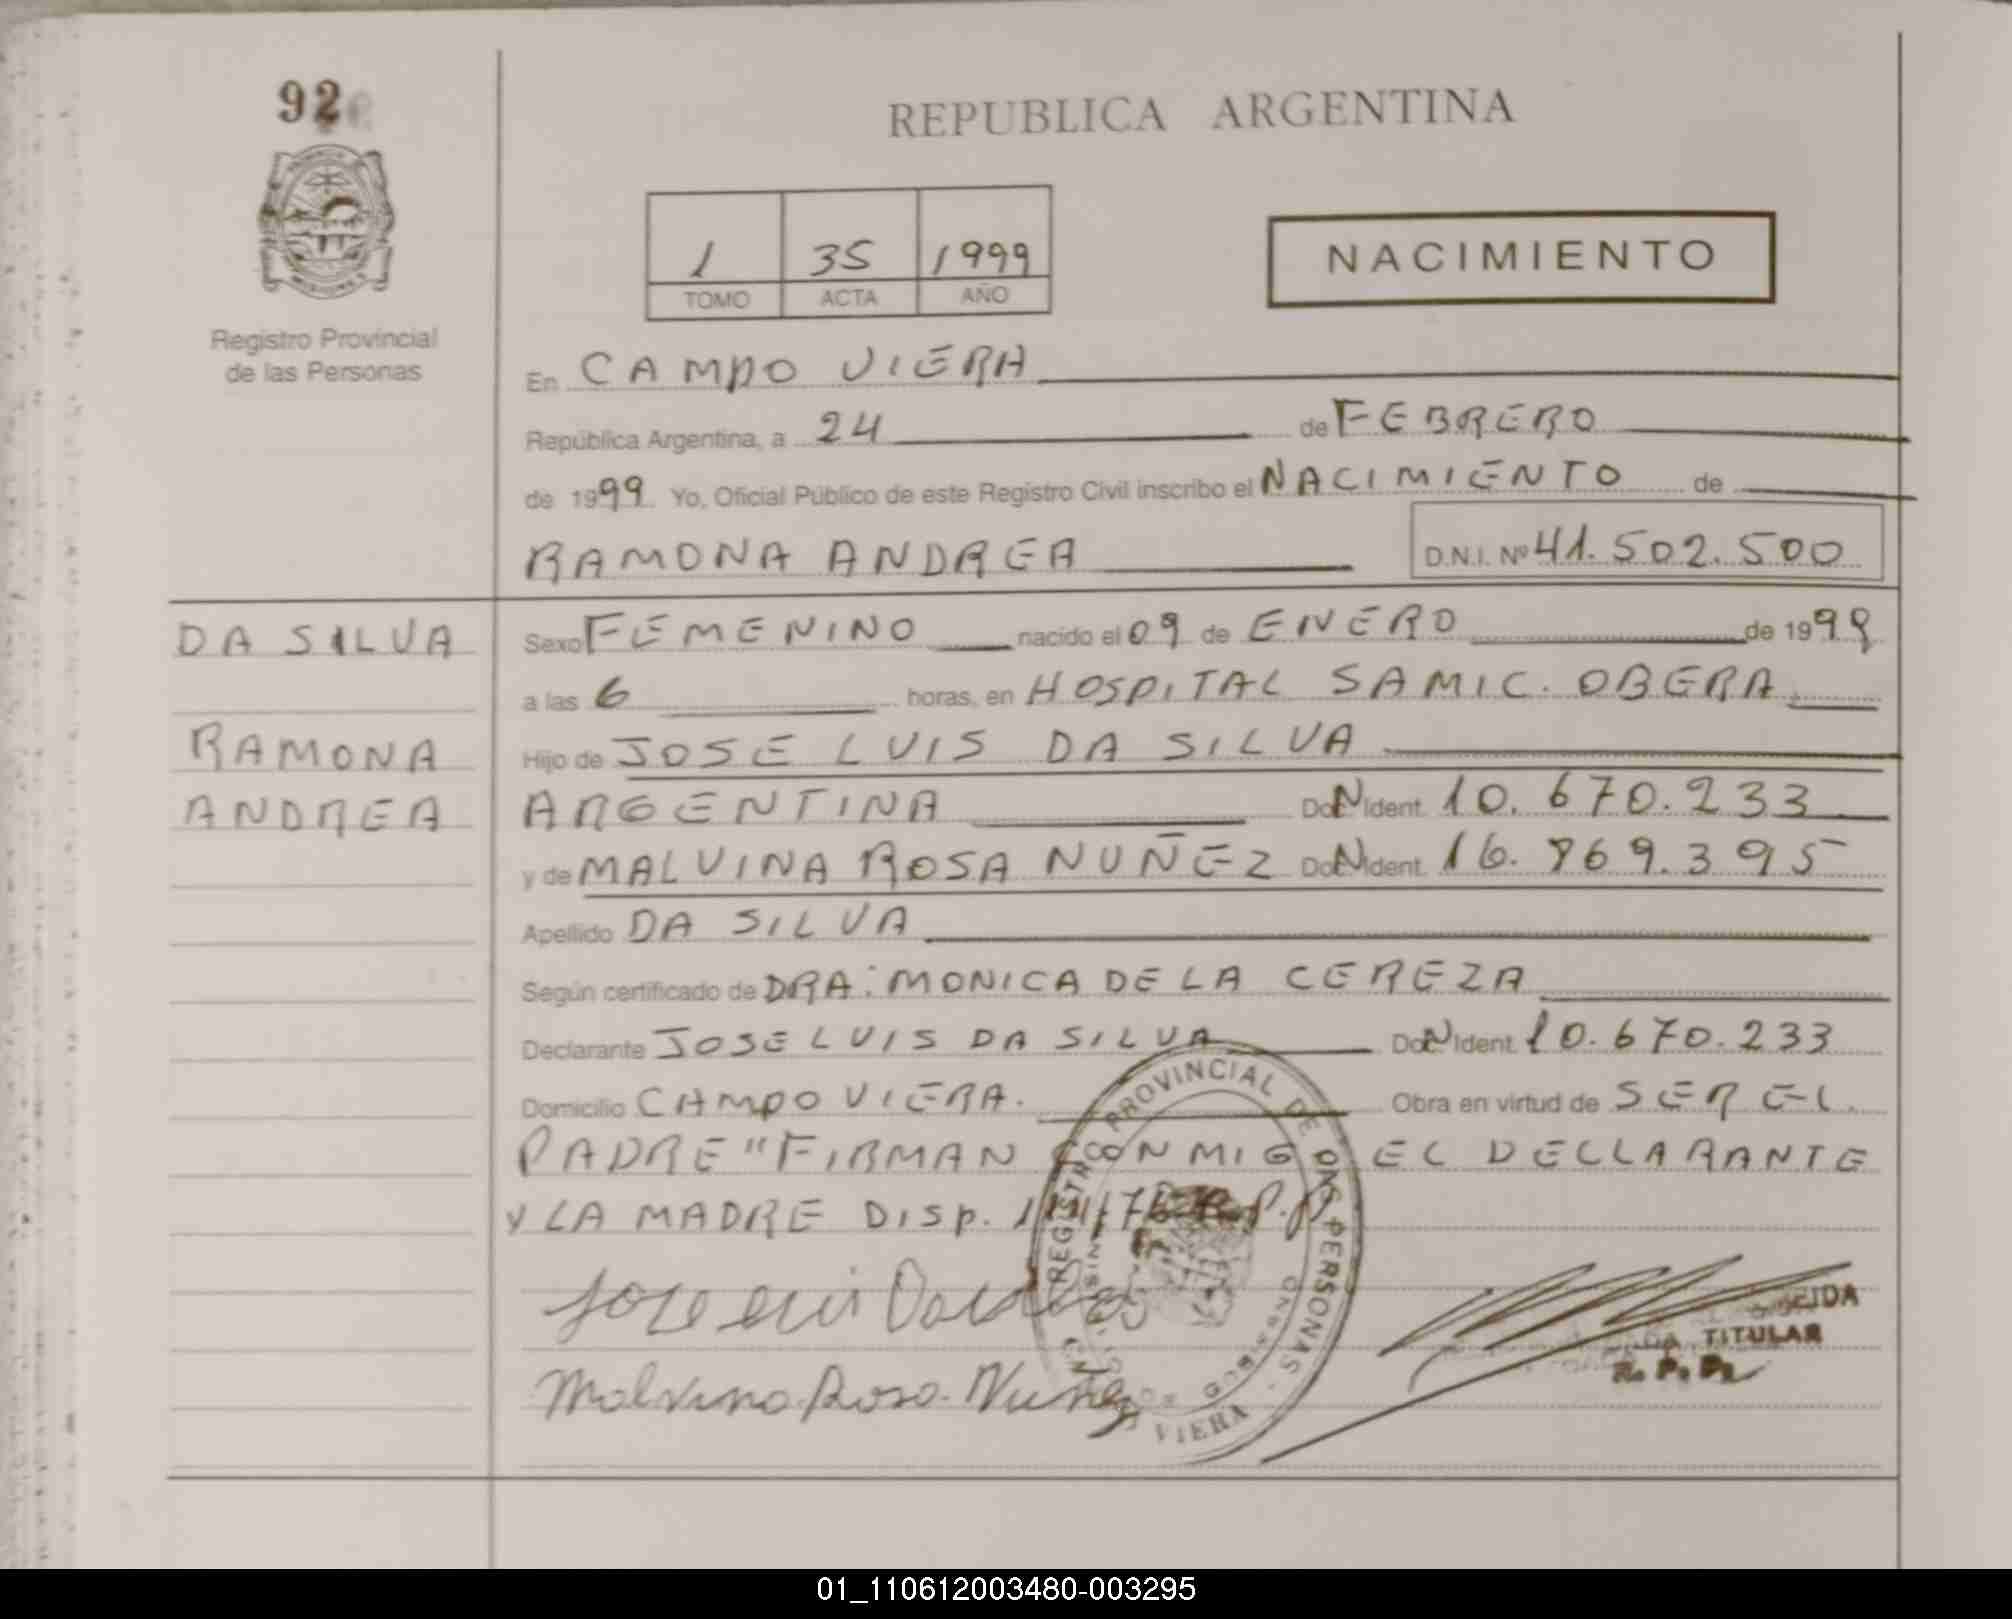 92
REPUBLICA ARGENTINA
1 35 1999
TOMO ACTA AÑO
NACIMIENTO
Registro Provincial
de las Personas
En CAMPO VIERA
República Argentina, a 24 de FEBRERO
de 1999 Yo, Oficial Público de este Registro Civil inscribo el NACIMIENTO de
RAMONA ANDREA D.N.I. Nº 41.502.500
DA SILVA
RAMONA
ANDREA
Sexo FEMENINO nacido el 09 de ENERO de 1999
a las 6 horas, en HOSPITAL SAMIC. OBERA
Hijo de JOSE LUIS DA SILVA
ARGENTINA Doc. Ident. 10.670.233
y de MALVINA ROSA NUÑEZ Doc. Ident. 16.869.395
Apellido DA SILVA
Según certificado de DRA: MONICA DE LA CEREZA
Declarante JOSE LUIS DA SILVA Doc. Ident. 10.670.233
Domicilio CAMPO VIERA. Obra en virtud de SER EL
PADRE "FIRMAN CONMIGO EL DECLLARANTE
Y LA MADRE DISP.
Jose luis Da Silva
Malvina Rosa Nuñez
REGISTRO PROVINCIAL DE LAS PERSONAS
VIERA
TITULAR
R. P. P.
01_110612003480-003295